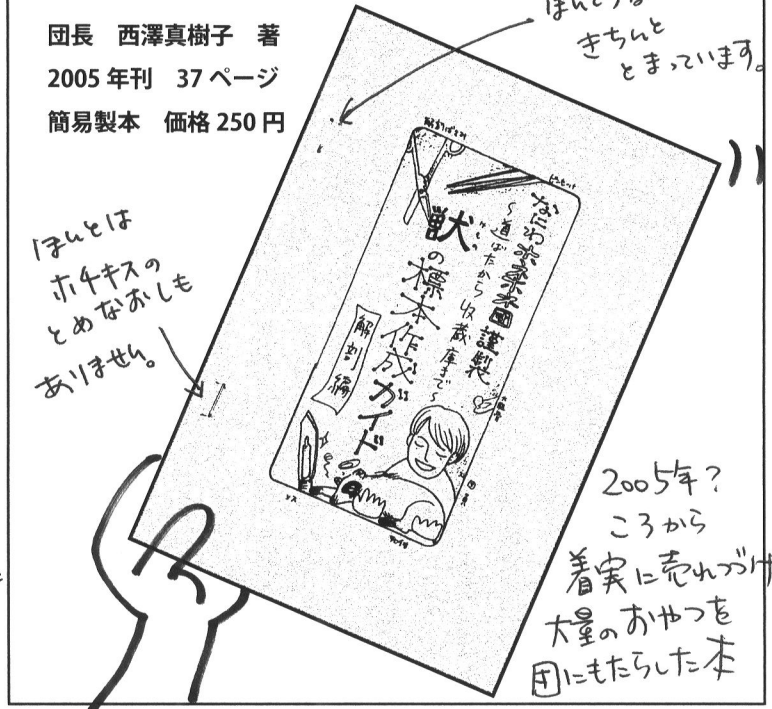 団長　西澤真樹子　著
2005年刊　37ページ
簡易製本　価格250円
きちんと
とまっています。
ほんとは
ホチキスの
とめなおしも
ありません。
解剖ばさみ
ピンセット
なにわホネホネ團 謹製
～道ばたから収蔵庫まで～
獣の標本作成ガイド
けもの
解剖編
メス
団長
2005年？
ころから
着実に売れつづけ
大量のおやつを
団にもたらした本